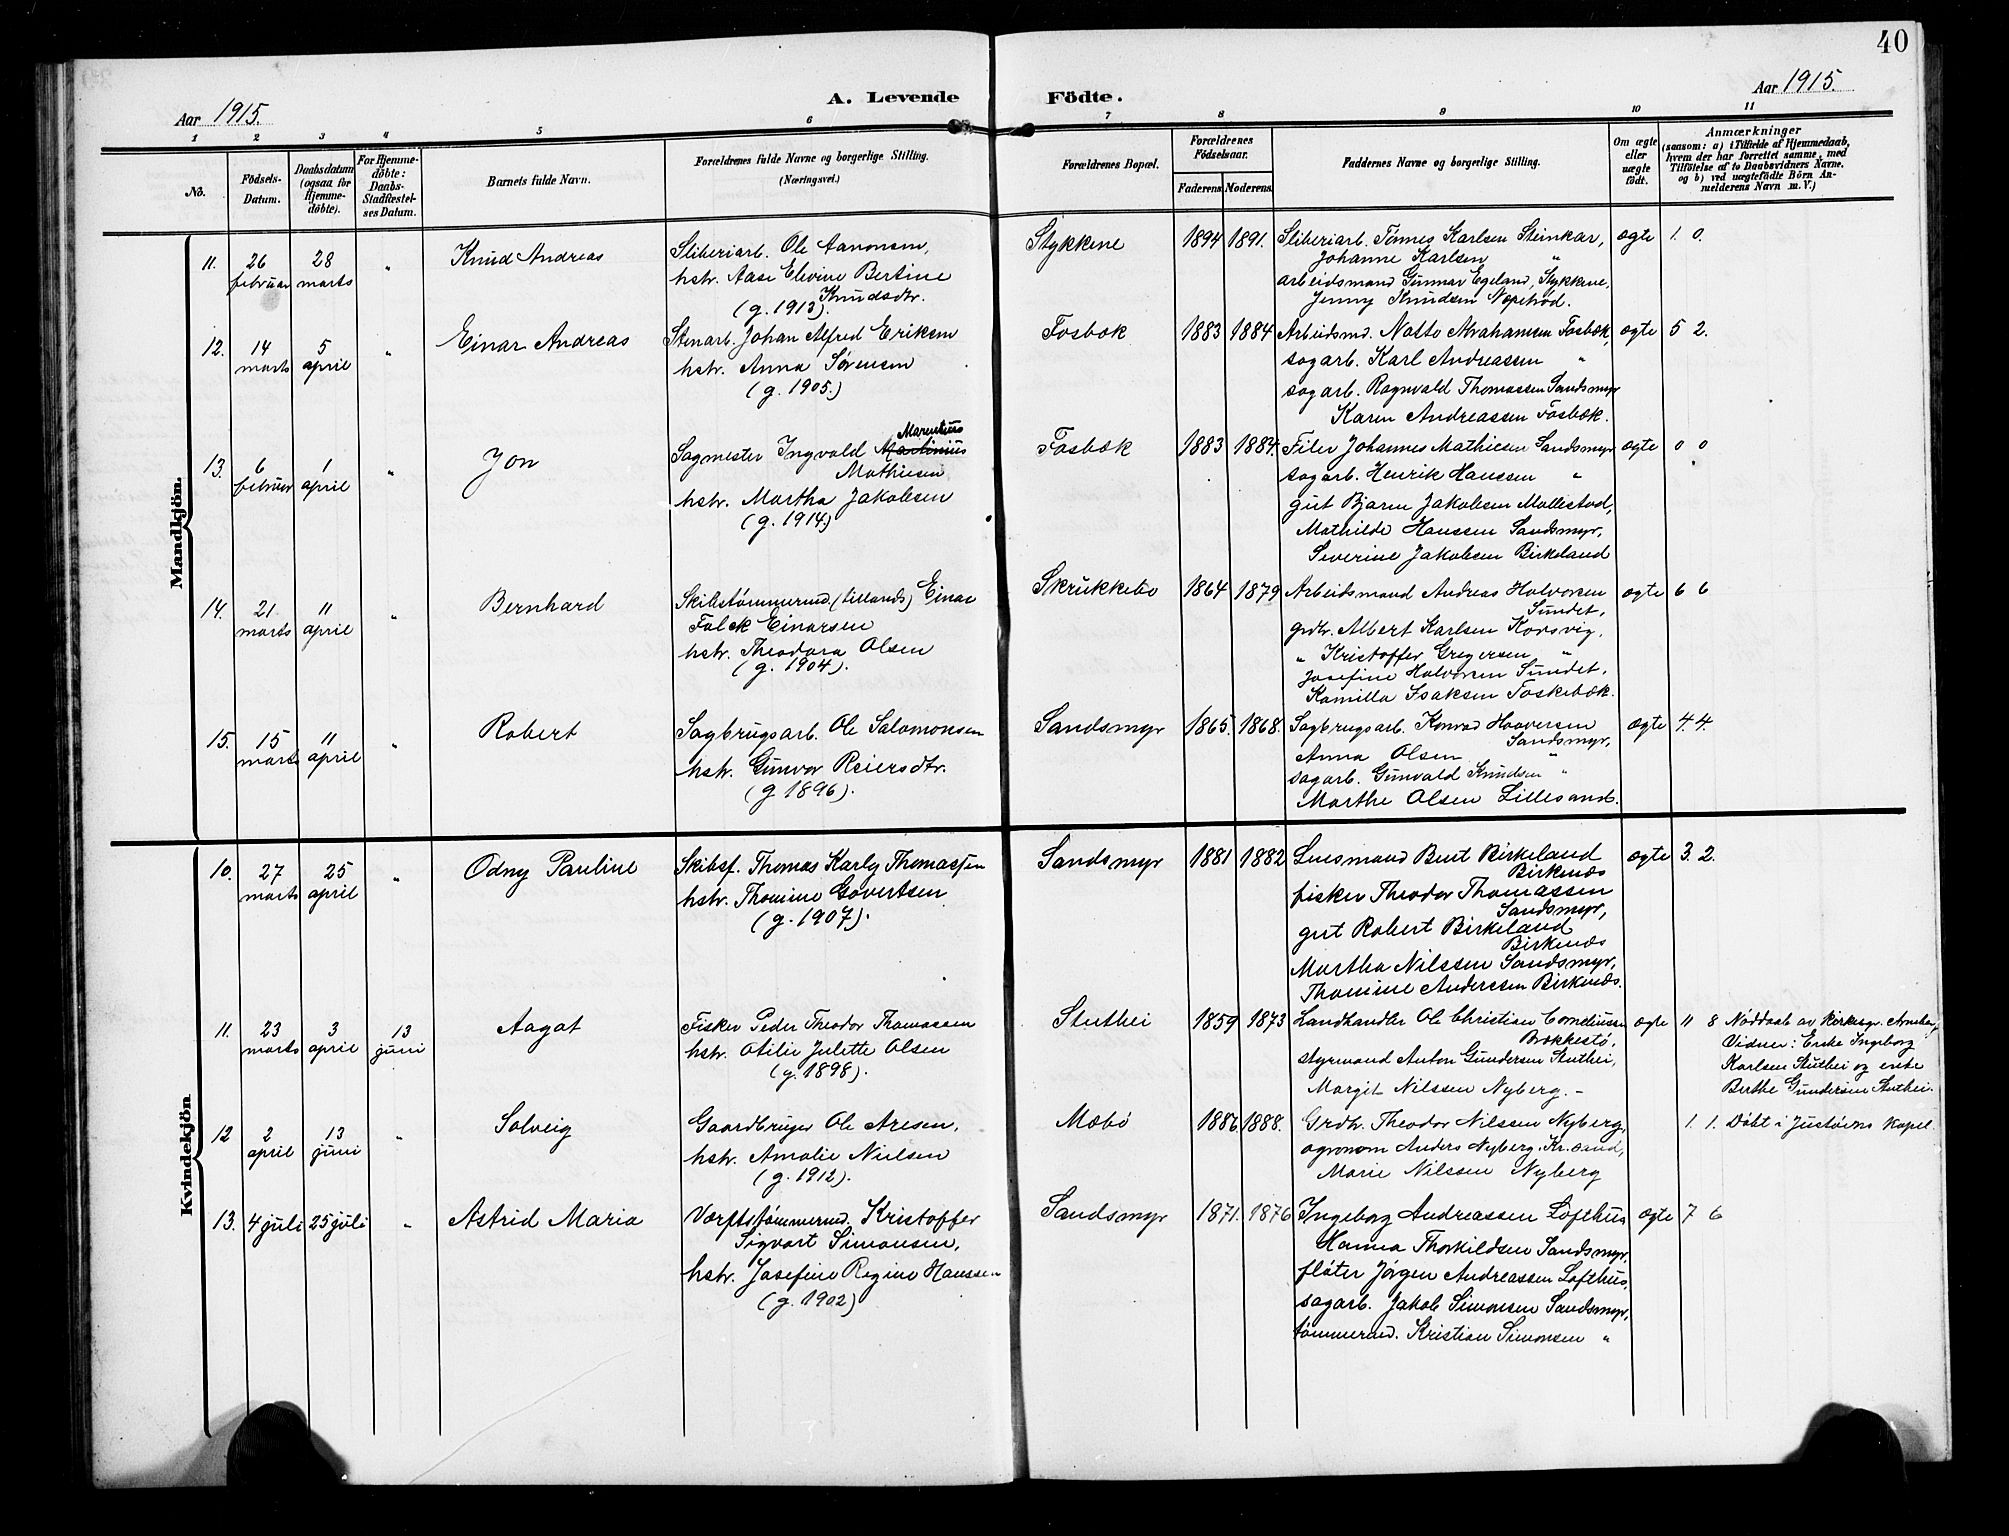 40
Aar 1915.
A. Levende
Födte.
Aar 1915.
1 2 3 4 5 6 7 8 9 10 11
No.
Födsels-Datum.
Daabsdatum (ogsaa for Hjemmedöbte).
For Hjemmedöbte: Daabs-Stadfæstelses Datum.
Barnets fulde Navn.
Forældrenes fulde Navne og borgerlige Stilling. (Næringsvei.)
Forældrenes Bopæl.
Forældrenes Födselsaar.
Faderens. Moderens.
Faddernes Navne og borgerlige Stilling.
Om ægte eller uægte födt.
Anmærkninger
(saasom: a) i Tilfælde af Hjemmedaab, hvem der har forrettet samme, med Tilföielse af to Daabsvidners Navne. og b) ved uægtefödte Börn Anmelderens Navn m. V.)
Mandkjön.
11. 26 februar 28 marts " Knud Andreas
Sliberiarb. Ole Aanonsen,
hstr. Aase Elevine Bertine
Knudsdtr.
(g. 1913).
Stykkene 1894 1891.
Sliberiarb. Tomes Karlsen Steinkar,
Johanne Karlsen "
arbeidsmand Gunnar Egeland, Stykkene,
Jenny Knudsen
ægte 1. 0.
12. 14 marts 5 april " Einar Andreas
Stenarb. Johan Alfred Eriksen
hstr. Anna Sørensen
(g. 1905.)
Fosbæk 1883 1884
Arbeidsmd. Notto Abrahamsen Fosbæk,
sagarb. Karl Andreassen "
sagarb. Ragnvald Thomassen Sandsmyr
Karen Andreassen Fosbæk.
ægte 5 2.
13. 6 februar 1 april " Jon
Marentius
Sagmester Ingvald Martinius
Mathiesen
hstr. Martha Jakobsen
(g. 1914.)
Fosbæk 1883 1884.
Filer Johannes Mathiesen Sandsmyr
sagarb. Henrik Hanssen "
gut Bjarne Jakobsen Mollestad,
Mathilde Hanssen Sandsmyr,
Severine Jakobsen Birkeland
ægte 0 0
14. 21. marts 11 april " Bernhard
Skibstømmermd. (tillands) Einar
Falck Einarsen
hstr. Theodora Olsen
(g. 1904).
Skrukkebo 1864 1879
Arbeidsmand Andreas Halvorsen
Sundet,
grdbr. Albert Karlsen Korsvig,
" Kristoffer Gregersen "
Josefine Halvorsen Sundet,
Kamilla Isaksen Foskebæk.
ægte 6 6
15. 15 marts 11 april " Robert
Sagbrugsarb. Ole Salomonsen
hstr. Gunvor Reiersdtr.
(g 1896).
Sandsmyr 1865. 1868.
Sagbrugsarb. Konrad Haaversen
Sandsmyr,
Anna Olsen "
sagarb. Gunvald Knudsen "
Marthe Olsen Lillesand.
ægte 4. 4.
Kvindekjön
10. 27 marts 25 april " Odny Pauline
Skibsf. Thomas Karly Thomassen
hstr. Thomine Govertsen
(g. 1907).
Sandsmyr 1881 1882
Lensmand Bent Birkeland
Birkenæs
fisker Theodor Thomassen
Sandsmyr,
gut Robert Birkeland
Birkenæs
Martha Nilssen Sandsmyr,
Thomine Anderssen Birkenæs.
ægte 3. 2.
11. 23 marts 3 april 13 juni Aagot
Fisker Peder Theodor Thomassen
hstr. Otilie Julette Olsen
(g. 1898).
Stuthei 1859 1873
Landhandler Ole Christian Corneliussen
Brækkestø,
styrmand Anton Gundersen Stuthei,
Margit Nilssen Nyberg. -
ægte 11 8
Nøddaab av kirkesgr.
Vidner: Enke Ingeborg
Karlsen Stuthei og enke
Berthe Gundersen Stuthei.
12 2 april 13 juni " Solveig
Gaardbruger Ole Aresen,
hstr. Amalie Nielsen
(g. 1912).
Mæbø 1886. 1888.
Grdbr. Theodor Nilssen Nyberg,
agronom Anders Nyberg, Kr.sand,
Marie Nilssen Nyberg
1. 1. Døbt i Justøens kapel.
13. 4 juli 25 juli " Astrid Maria
Værftstømmermd. Kristoffer
Sigvart Simonsen,
hstr. Josefine Regine Hanssen
(g. 1902)
Sandsmyr 1871. 1876
Ingeborg Andreassen Lofthus
Hanna Thorkildsen Sandsmyr,
fløter Jørgen Andreassen Lofthus,
sagarb. Jakob Simonsen Sandsmyr,
tømmermd. Kristian Simonsen "
ægte 7 6